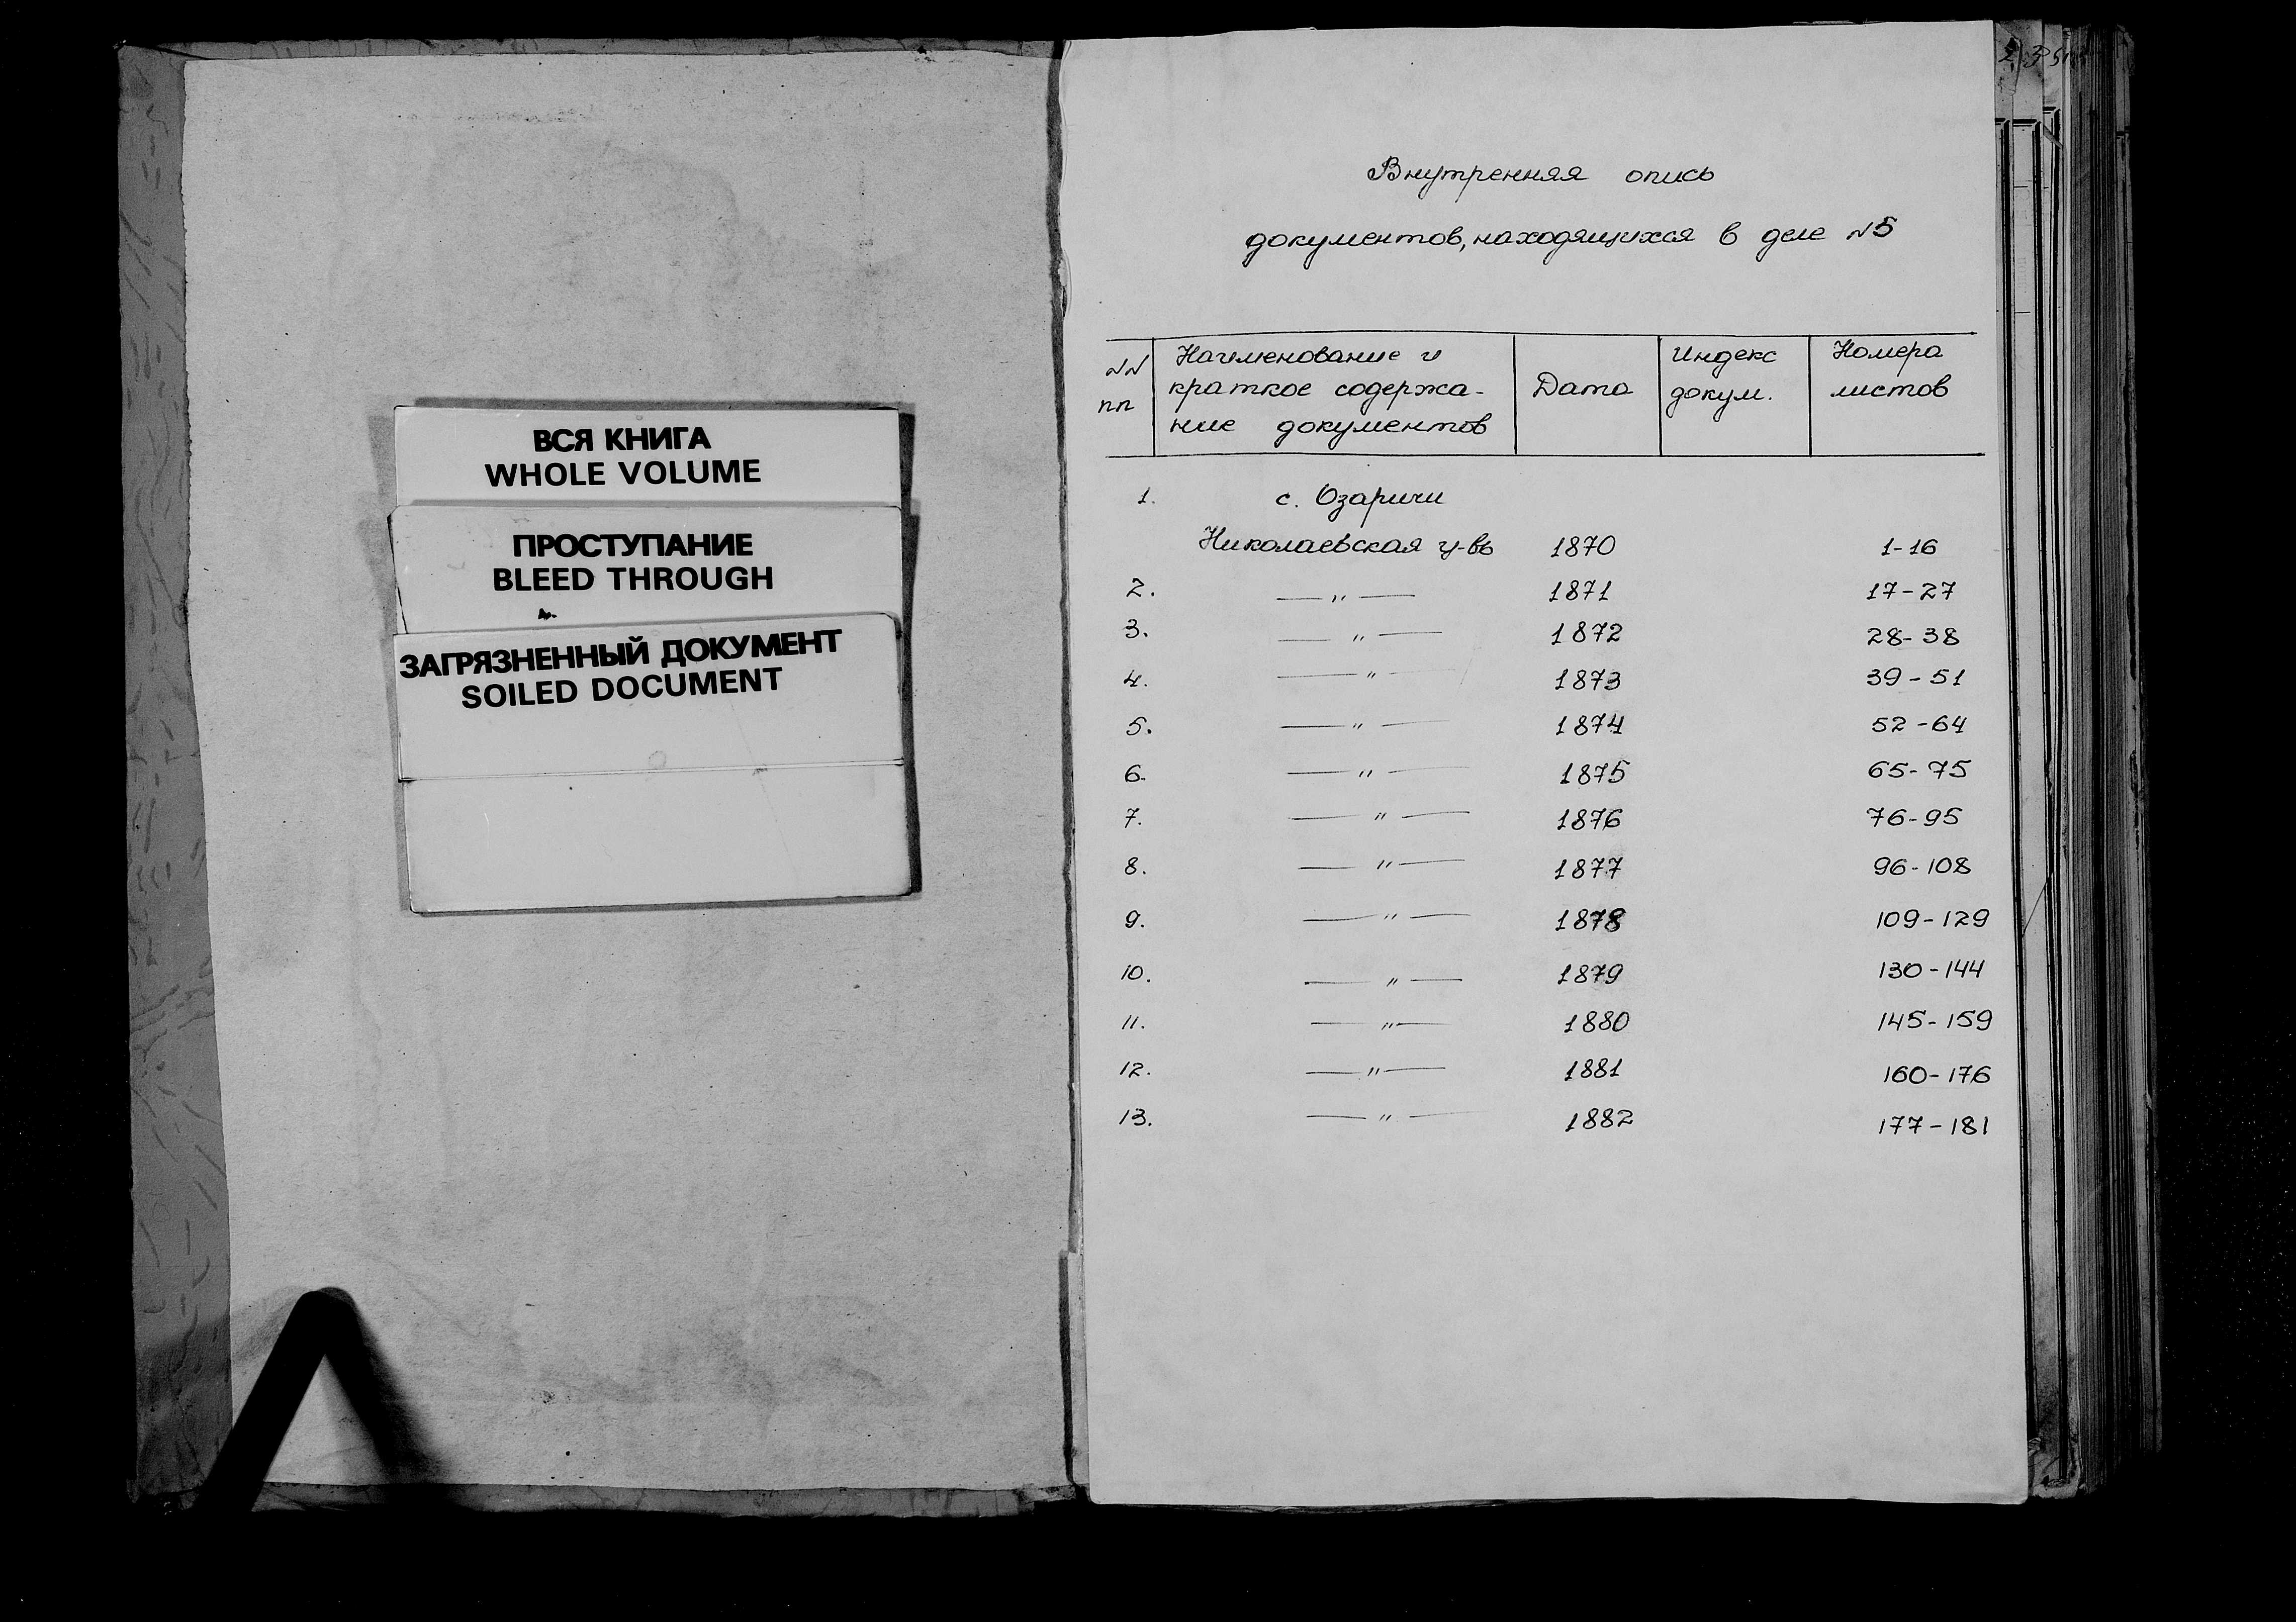 ВСЯ КНИГА
WHOLE VOLUME
ПРОСТУПАНИЕ
BLEED THROUGH
ЗАГРЯЗНЕННЫЙ ДОКУМЕНТ
SOILED DOCUMENT
Внутренняя опись
документов, находящихся в деле №5
№№ пп | Наименование и краткое содержа- ние документов | Дата | Индекс докум. | Номера листов
1. с. Озаричи
Николаевская ц-вь 1870 1-16
2. —„— 1871 17-27
3. —„— 1872 28-38
4. —„— 1873 39-51
5. —„— 1874 52-64
6. —„— 1875 65-75
7. —„— 1876 76-95
8. —„— 1877 96-108
9. —„— 1878 109-129
10. —„— 1879 130-144
11. —„— 1880 145-159
12. —„— 1881 160-176
13. —„— 1882 177-181